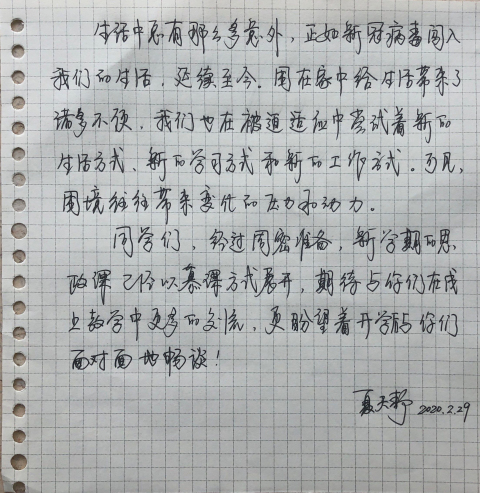 生活中总有那么多意外，正如新冠病毒闯入
我们的生活，延续至今。困在家中给生活带来了
诸多不便，我们也在被迫适应中尝试着新的
生活方式、新的学习方式和新的工作方式。可见，
困境往往带来变化的压力和动力。
同学们，经过周密准备，新学期的思
政课已经以慕课方式展开，期待与你们在线
上教学中更多的交流，更盼望着开学后与你们
面对面地畅谈！
2020.2.29